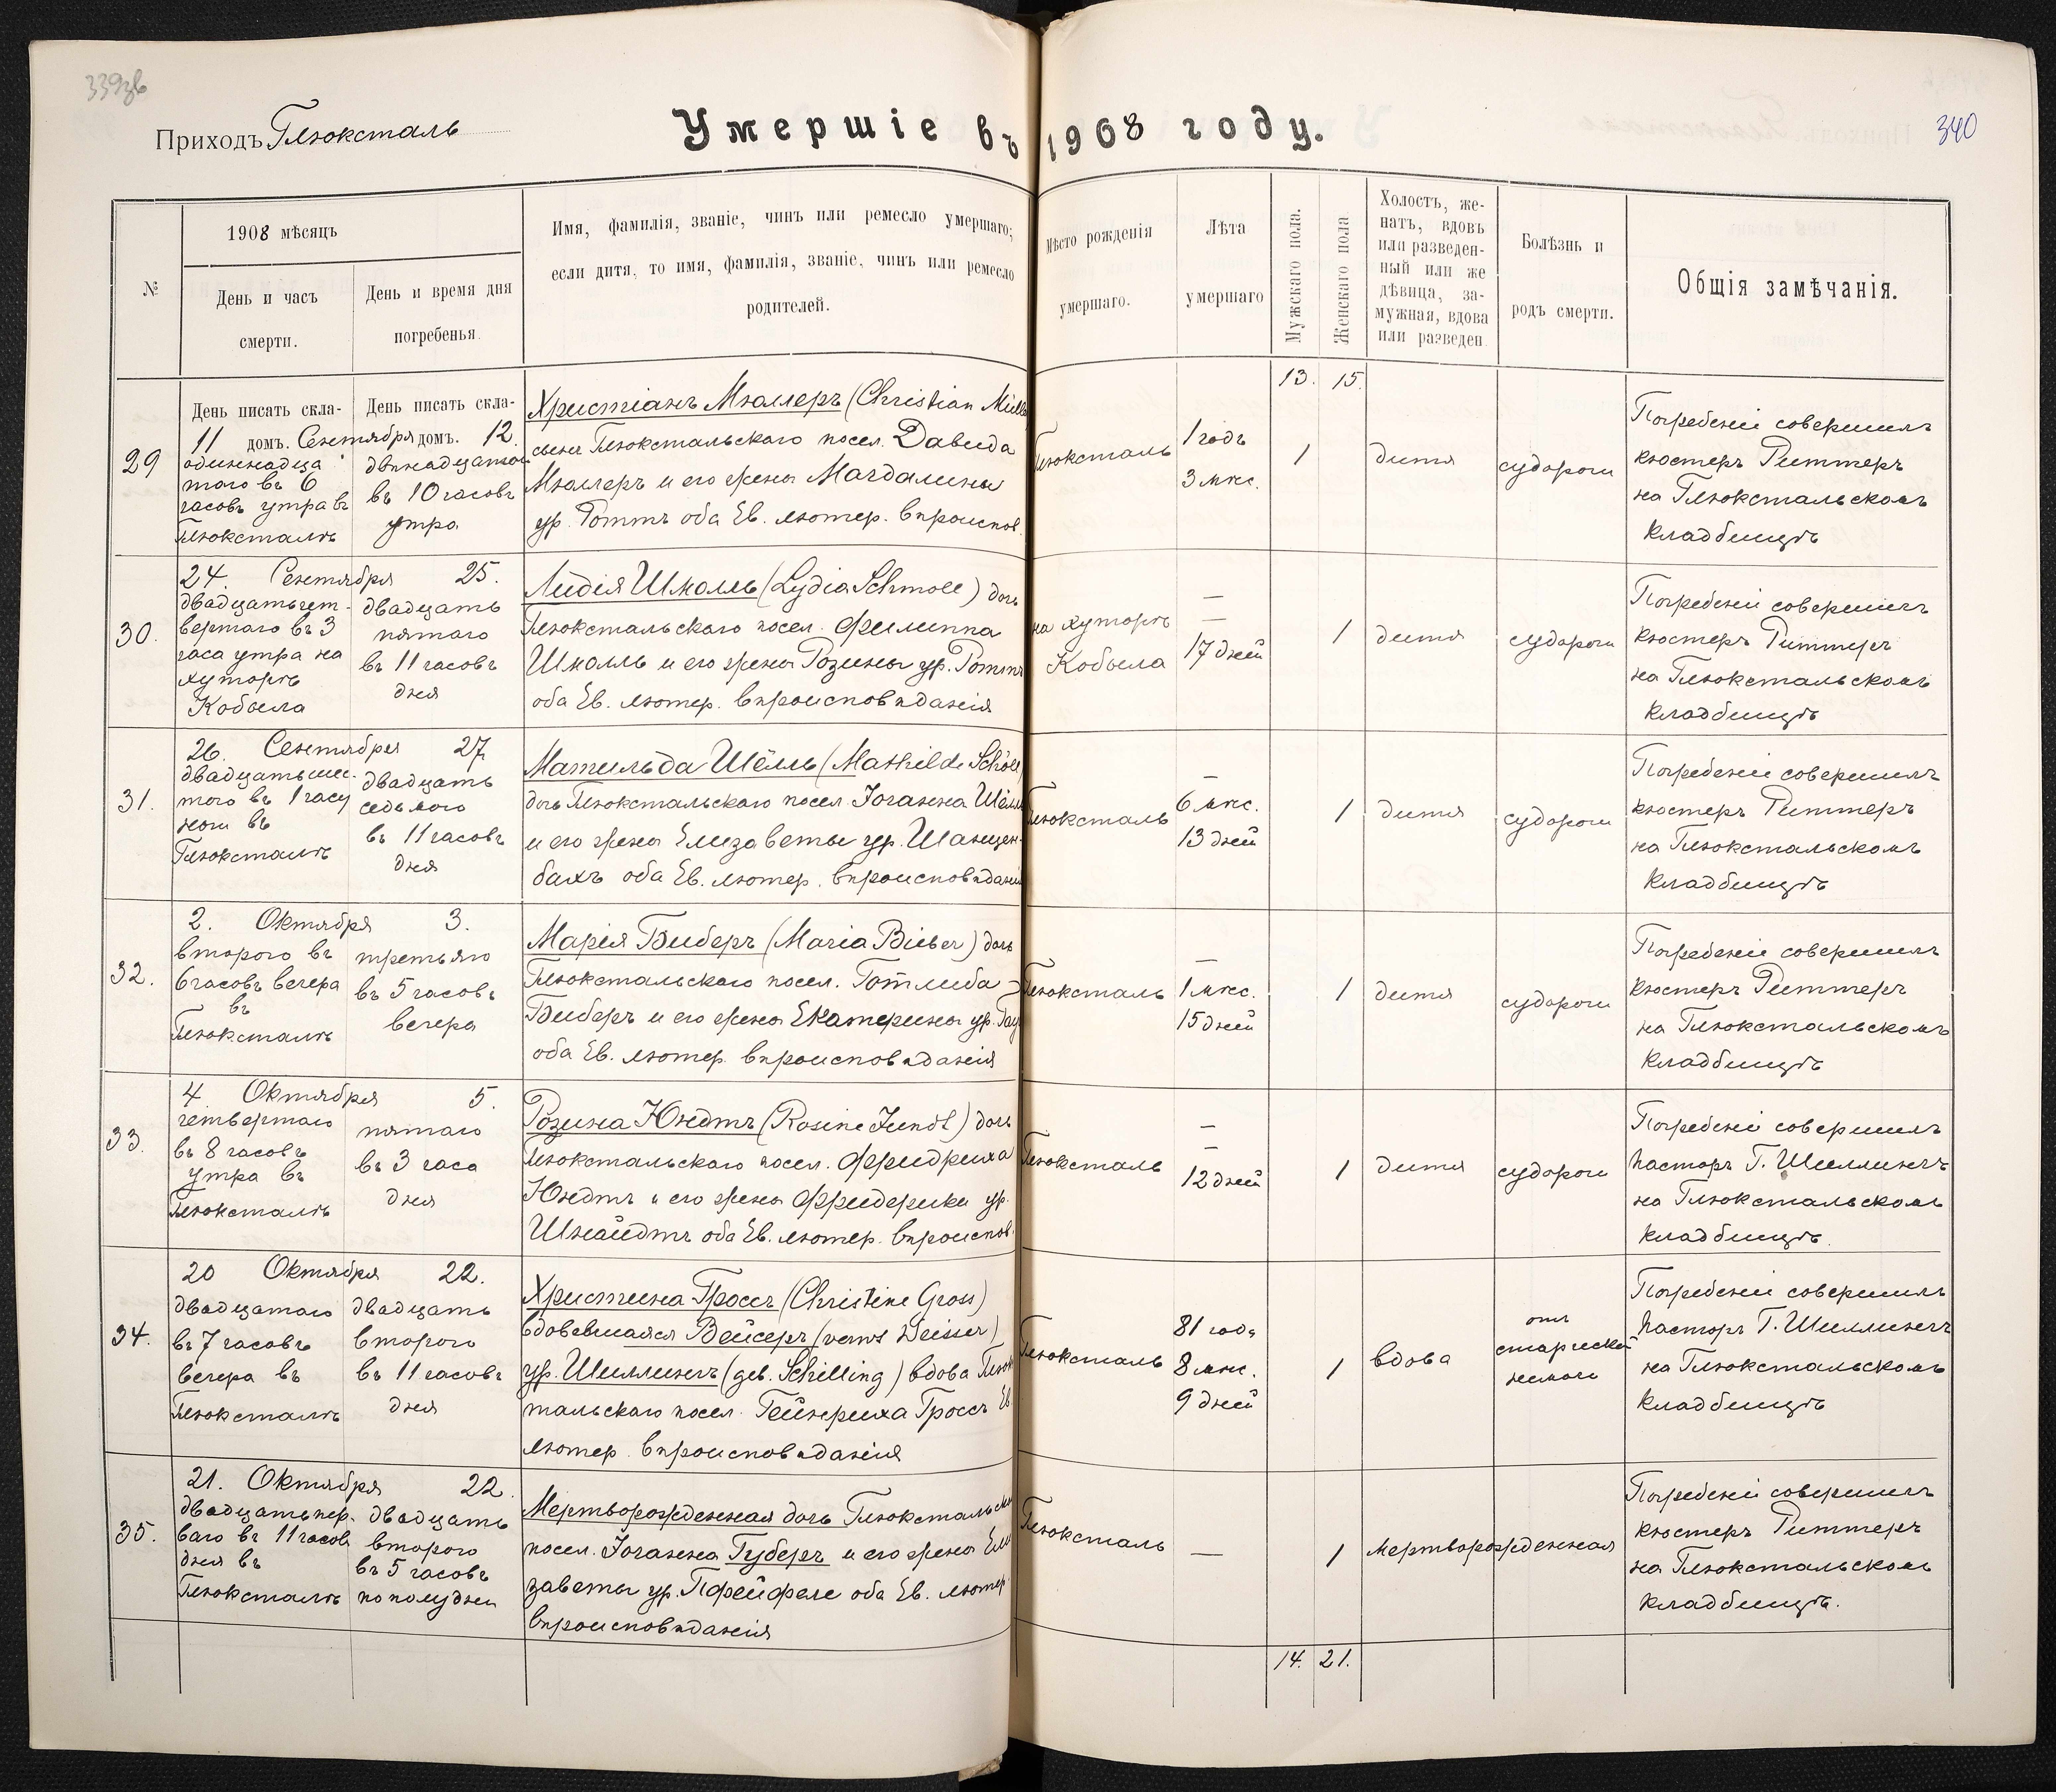 339зв
340
Приходъ Глюксталь
Умершіе въ 1908 году.
№
1908 мѣсяцъ
День и часъ
смерти.
День и время дня
погребенья.
Имя, фамилія, званіе, чинъ или ремесло умершаго;
если дитя, то имя, фамилія, званіе, чинъ или ремесло
родителей.
Мѣсто рожденія
умершаго.
Лѣта
умершаго
Мужскаго пола.
Женскаго пола
Холостъ, же-
натъ, вдовъ
или разведен-
ный или же
дѣвица, за-
мужная, вдова
или разведен.
Болѣзнь и
родъ смерти.
Общія замѣчанія.
13. 15.
29
День писать скла-
11 домъ. Сентября
одиннадца
того въ 6
часовъ утра въ
Глюксталѣ
День писать скла-
домъ. 12.
двѣнадцатаго
въ 10 часовъ
утра
Христіанъ Мюллеръ (Christian Müller
сынъ Глюкстальскаго посел. Давида
Мюллеръ и его жены Магдалины
ур. Ротъ оба Ев. лютер. вѣроиспов.
Глюксталь
1 годъ
3 мѣс.
1
дитя
судороги
Погребеніе совершилъ
кюстеръ Риттеръ
на Глюкстальскомъ
кладбищѣ
30.
24. Сентября 25.
двадцать чет-
вертаго въ 3
часа утра на
хуторѣ
Кобыла
двадцать
пятаго
въ 11 часовъ
дня
Лидія Шмолль (Lydia Schmoll) дочь
Глюкстальскаго посел. Филиппа
Шмолль и его жены Розины ур. Роттъ
оба Ев. лютер. вѣроисповѣданія
на хуторѣ
Кобыла
—
—
17 дней
1
дитя
судороги
Погребеніе совершилъ
кюстеръ Риттеръ
на Глюкстальскомъ
кладбищѣ
31.
26. Сентября 27.
двадцать шес-
того въ 1 часу
ночи въ
Глюксталѣ
двадцать
седьмого
въ 11 часовъ
дня
Матильда Шёлль (Mathilde Schöll)
дочь Глюкстальскаго посел. Іоганна Шёлль
и его жены Елизаветы ур. Шанцен-
бахъ оба Ев. лютер. вѣроисповѣданія
Глюксталь
—
6 мѣс.
13 дней
1
дитя
судороги
Погребеніе совершилъ
кюстеръ Риттеръ
на Глюкстальскомъ
кладбищѣ
32.
2. Октября 3.
второго въ
6 часовъ вечера
въ
Глюксталѣ
третьяго
въ 5 часовъ
вечера
Марія Биберъ (Maria Bieber) дочь
Глюкстальскаго посел. Готлиба
Биберъ и его жены Екатерины ур.
оба Ев. лютер. вѣроисповѣданія
Глюксталь
—
1 мѣс.
15 дней
1
дитя
судороги
Погребеніе совершилъ
кюстеръ Риттеръ
на Глюкстальскомъ
кладбищѣ
33.
4. Октября 5.
четвертаго
въ 8 часовъ
утра въ
Глюксталѣ
пятаго
въ 3 часа
дня
Розина Юндтъ (Rosine Jundt) дочь
Глюкстальскаго посел. Фридриха
Юндтъ и его жены Фридерики ур.
Шнайдтъ оба Ев. лютер. вѣроиспов.
Глюксталь
—
—
12 дней
1
дитя
судороги
Погребеніе совершилъ
пасторъ Г. Шиллингъ
на Глюкстальскомъ
кладбищѣ.
34.
20 Октября 22.
двадцатаго
въ 7 часовъ
вечера въ
Глюксталѣ
двадцать
второго
въ 11 часовъ
дня
Христина Гроссъ (Christine Gross)
вдовевшаяся Вейсеръ (verwt Weisser)
ур. Шиллингъ (geb. Schilling) вдова Глюкс
тальскаго посел. Гейнриха Гроссъ Ев.
лютер. вѣроисповѣданія
Глюксталь
81 годъ
8 мѣс.
9 дней
1
вдова
отъ
старческой
немочи
Погребеніе совершилъ
пасторъ Г. Шиллингъ
на Глюкстальскомъ
кладбищѣ
35.
21. Октября 22.
двадцать пер-
ваго въ 11 часовъ
дня въ
Глюксталѣ
двадцать
второго
въ 5 часовъ
по полудни
Мертворожденная дочь Глюкстальска
посел. Іоганна Губеръ и его жены Ели
заветы ур. Пфейфеле оба Ев. лютер.
вѣроисповѣданія
Глюксталь
—
1
мертворожденная
Погребеніе совершилъ
кюстеръ Риттеръ
на Глюкстальскомъ
кладбищѣ.
14. 21.